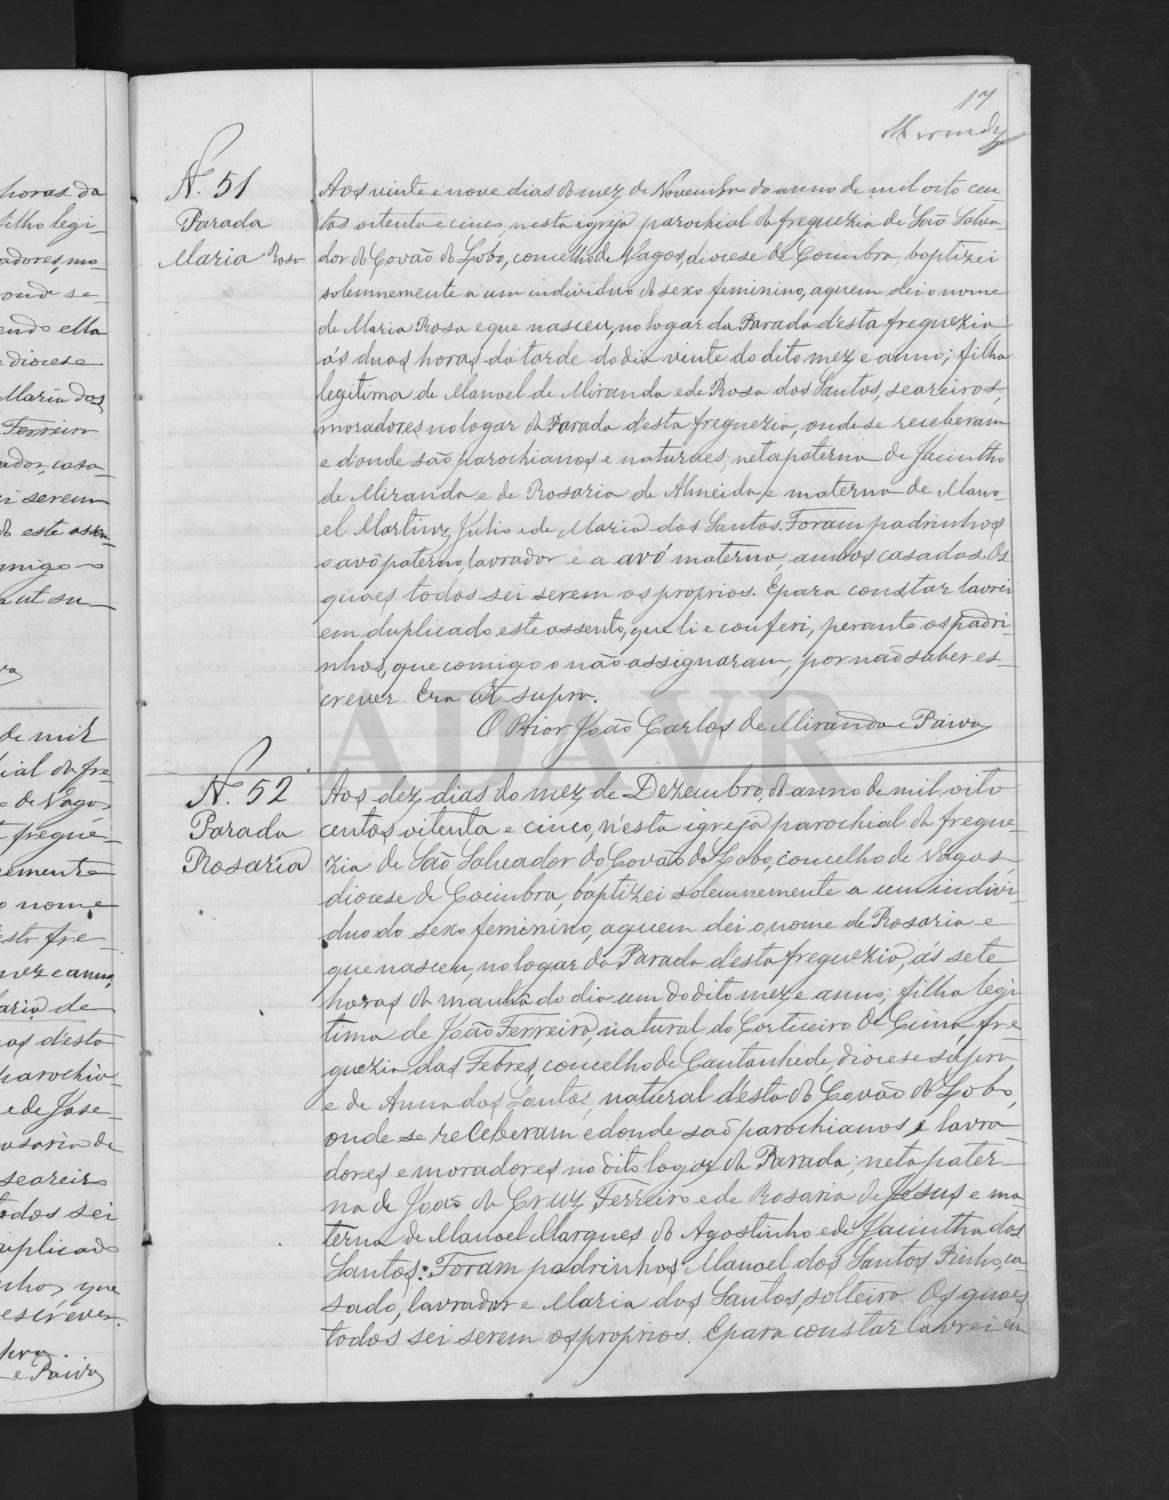 17
N. 51
Parada
Maria Rosa
Aos vinte e nove dias do mez de Novembro do anno de mil oito cen
tos oitenta e cinco, nesta igreja parochial da freguezia de São Salva-
dor do Covão do Lobo, concelho de Vagos, diocese de Coimbra, baptizei
solemnemente a um individuo do sexo feminino, a quem dei o nome
de Maria Rosa e que nasceu, no logar da Parada d'esta freguezia
ás duas horas da tarde do dia vinte do dito mez e anno; filha
legitima de Manoel de Miranda e de Rosa dos Santos, seareiros,
moradores no logar da Parada d'esta freguezia, onde se receberam
e d'onde são parochianos e naturaes; neta paterna de Jacintho
de Miranda e de Rosaria de Almeida, e materna de Mano-
el Martins Julio e de Maria dos Santos. Foram padrinhos
o avô paterno, lavrador e a avó materna, ambos casados. Os
quaes todos sei serem os proprios. E para constar lavrei
em duplicado este assento, que li e conferi, perante os padri-
nhos, que comigo o não assignaram, por não saber es-
crever. Era ut supra.
O Prior João Carlos de Miranda e Paiva
N. 52
Parada
Rosaria
Aos dez dias do mez de Dezembro, do anno de mil oito
centos oitenta e cinco, n'esta igreja parochial da fregue-
zia de São Salvador do Covão do Lobo, concelho de Vagos,
diocese de Coimbra, baptizei solemnemente a um indivi-
duo do sexo feminino, a quem dei o nome de Rosaria e
que nasceu, no logar da Parada d'esta freguezia, ás sete
horas da manhã do dia um do dito mez e anno; filha legi
tima de João Ferreira, natural do Corticeiro de Cima, fre
guezia das Febres, concelho de Cantanhede, diocese supra,
e de Anna dos Santos, natural d'esta do Covão do Lobo,
onde se receberam e donde são parochianos, e lavra
dores e moradores no dito logar da Parada; neta pater-
na de João da Cruz Ferreiro e de Rosaria de Jesus e ma
terna de Manoel Marques do Agostinho e de Jacintha dos
Santos: Foram padrinhos Manoel dos Santos Pinho, ca-
sado, lavrador e Maria dos Santos, solteira. Os quaes
todos sei serem os proprios. E para constar lavrei em
horas da
filho legi-
adores, mo-
onde se-
endo ella
diocese
Maria dos
Ferreira
ador, casa-
serem
este assen-
migo o
ut su-
de mil
ial da fre-
de Vagos
fregue-
emente
nome
esta fre-
mez e anno;
aria de
as d'esta
parochia-
e de José
osaria de
seareiro
todos sei
uplicado
nhos que
escrever.
e Paiva
ADAVR